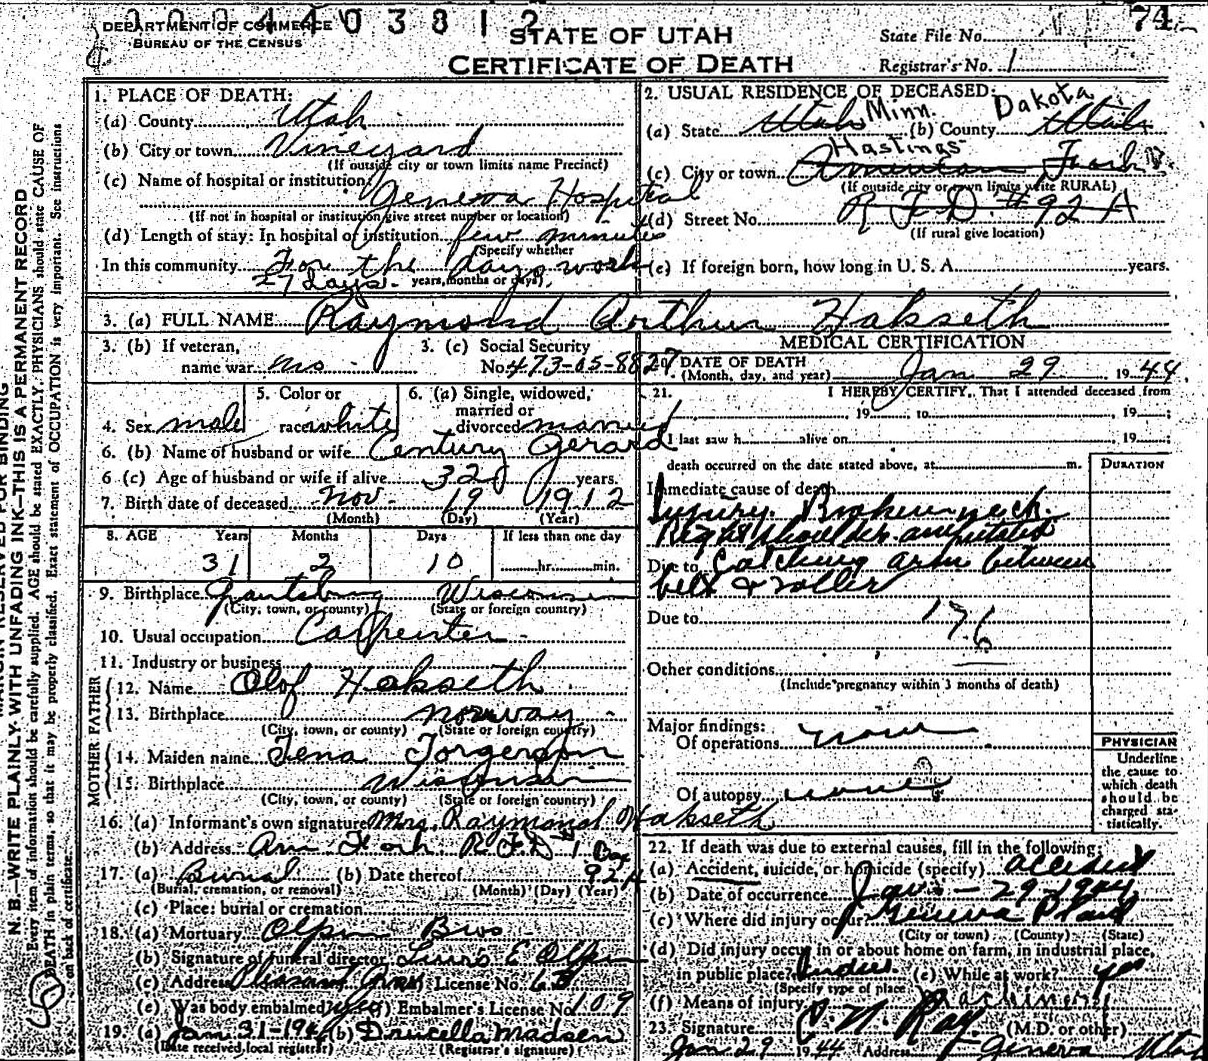 0 0 0 4 4 0 3 8 1 2
74
DEPARTMENT OF COMMERCE
BUREAU OF THE CENSUS
STATE OF UTAH
CERTIFICATE OF DEATH
State File No.
Registrar's No. 1
MARGIN RESERVED FOR BINDING
N. B.—WRITE PLAINLY WITH UNFADING INK—THIS IS A PERMANENT RECORD
Every item of information should be carefully supplied. AGE should be stated EXACTLY. PHYSICIANS should state CAUSE OF
DEATH in plain terms, so that it may be properly classified. Exact statement of OCCUPATION is very important. See instructions
on back of certificate.
1. PLACE OF DEATH:
(a) County Utah
(b) City or town Vineyard
(If outside city or town limits name Precinct)
(c) Name of hospital or institution:
Geneva Hospital
(If not in hospital or institution give street number or location)
(d) Length of stay: In hospital or institution few minutes
(Specify whether
In this community For the days work
27 days. years, months or days)
2. USUAL RESIDENCE OF DECEASED:
(a) State Utah Minn. (b) County Utah Dakota
Hastings
(c) City or town American Fork
(If outside city or town limits write RURAL)
(d) Street No. R F D. #92 A
(If rural give location)
(e) If foreign born, how long in U. S. A. years.
3. (a) FULL NAME Raymond Arthur Hakseth
3. (b) If veteran,
name war no
3. (c) Social Security
No. 473-05-8827
4. Sex male
5. Color or
race white
6. (a) Single, widowed,
married or
divorced married
6. (b) Name of husband or wife Century Gerard
6 (c) Age of husband or wife if alive 32 years.
7. Birth date of deceased Nov. 19 1912
(Month) (Day) (Year)
8. AGE Years Months Days If less than one day
31 2 10 hr. min.
9. Birthplace Grantsburg Wisconsin
(City, town, or county) (State or foreign country)
10. Usual occupation Carpenter
11. Industry or business
FATHER
12. Name Olof Hakseth
13. Birthplace Norway
(City, town, or county) (State or foreign country)
MOTHER
14. Maiden name Tena Torgerson
15. Birthplace Wisconsin
(City, town, or county) (State or foreign country)
16. (a) Informant's own signature Mrs. Raymond Hakseth
(b) Address Am Fork R F D #1 Box
92 A
17. (a) Burial (b) Date thereof
(Burial, cremation, or removal) (Month) (Day) (Year)
(c) Place: burial or cremation
18. (a) Mortuary Olpin Bros
(b) Signature of funeral director E Olpin
(c) Address Pleasant Grove License No. 63
(e) Was body embalmed yes (f) Embalmer's License No. 109
19. (a) Jan 31-1944 (b) Drucella Madsen
(Date received local registrar) (Registrar's signature)
MEDICAL CERTIFICATION
20. DATE OF DEATH
(Month, day, and year) Jan 29 1944.
21. I HEREBY CERTIFY, That I attended deceased from
, 19 to , 19 ;
I last saw h alive on , 19 ;
death occurred on the date stated above, at m.
DURATION
Immediate cause of death
Injury. Broken neck.
Right shoulder amputated
Due to Catching arm between
belt & roller
Due to
176
Other conditions
(Include pregnancy within 3 months of death)
Major findings:
Of operations none
Of autopsy none
PHYSICIAN
Underline
the cause to
which death
should be
charged sta-
tistically.
22. If death was due to external causes, fill in the following:
(a) Accident, suicide, or homicide (specify) accident
(b) Date of occurrence Jan - 29 - 1944
(c) Where did injury occur? Geneva Plant
(City or town) (County) (State)
(d) Did injury occur in or about home on farm, in industrial place,
in public place? Indus. (e) While at work? yes
(Specify type of place)
(f) Means of injury Machinery
23. Signature Ray (M.D. or other)
Jan 29 1944 Address Geneva Utah